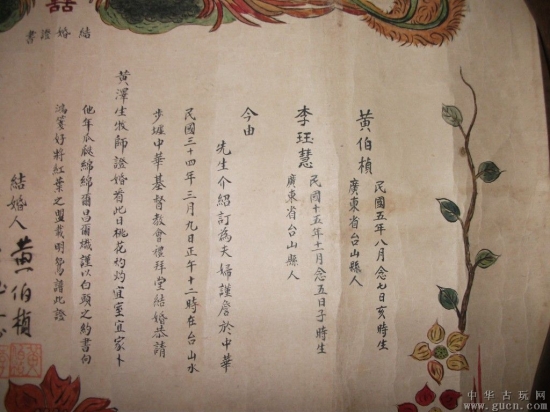 囍
書證婚結
黃伯楨 民國五年八月念七日亥時生
廣東省台山縣人
李珏慧 民國十五年十一月念五日子時生
廣東省台山縣人
今由
先生介紹訂為夫婦謹詹於中華
民國三十四年三月九日正午十二時在台山水
步墟中華基督教會禮拜堂結婚恭請
黃澤生牧師證婚看此日桃花灼灼宜室宜家卜
他年瓜瓞綿綿爾昌爾熾謹以白頭之約書向
鴻箋好將紅葉之盟載明鴛譜此證
結婚人 黃伯楨
中华古玩网
www.gucn.com